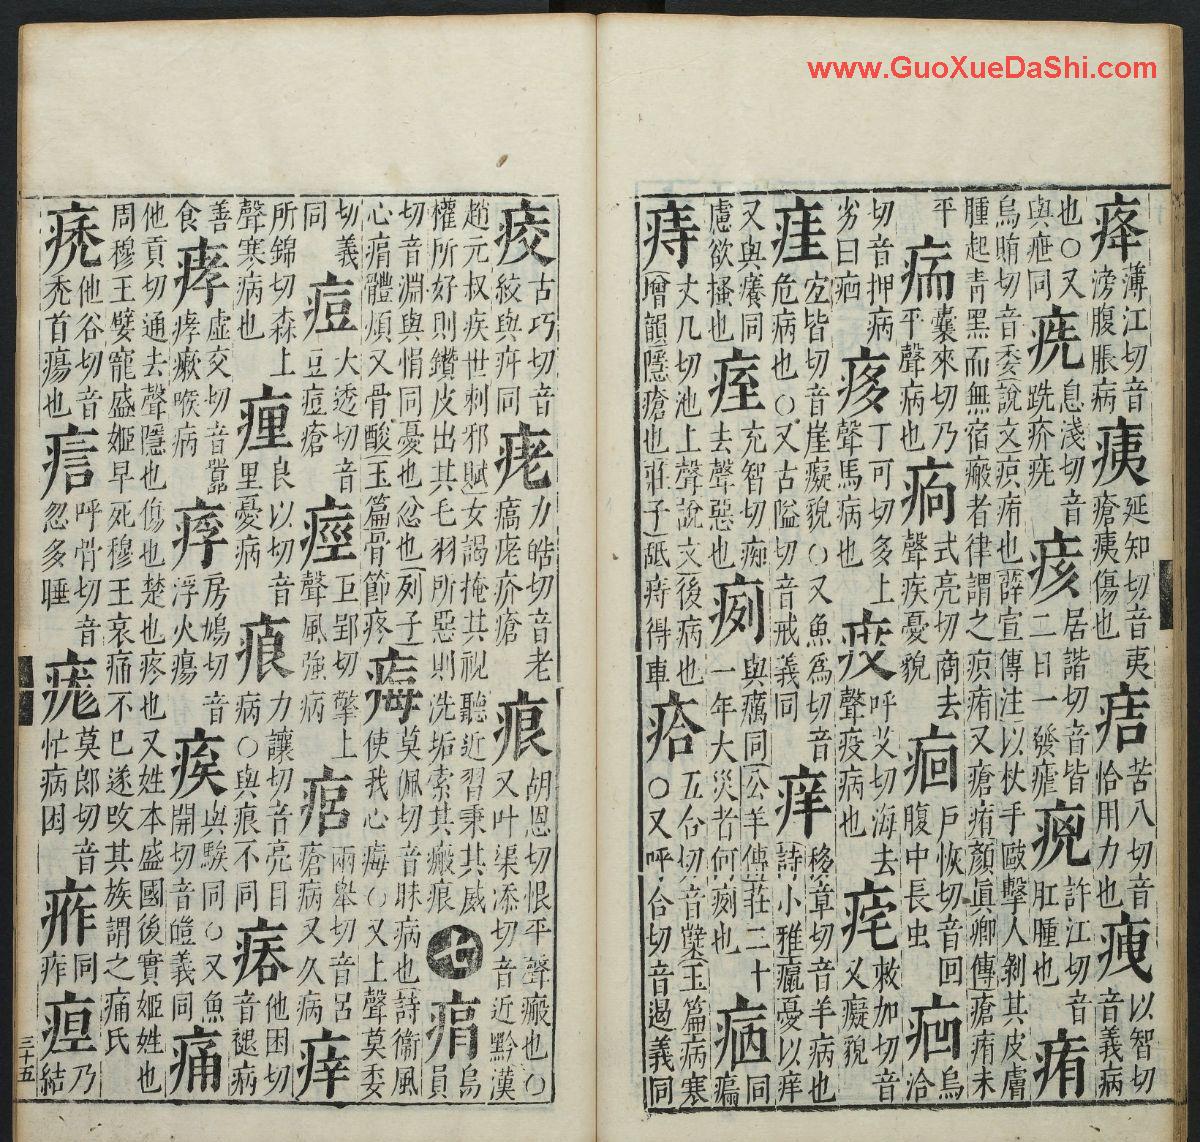 薄江切音滂腹脹病 痍 延知切音夷瘡痍傷也 苦八切音恰用力也 以智切音義病
也○又與疵同 㾌 息淺切音跣疥㾌 痎 居諧切音皆二日一發瘧 許江切音肛腫也 痏
烏賄切音委說文疻痏也薛宣傳注以杖手毆擊人剝其皮膚腫起青黑而無宿瘢者律謂之疻痏又瘡痏顏眞卿傳瘡痏未
平 囊來切乃平聲病也 式亮切商去聲疾憂貌 痐 戶恢切音回腹中長虫 烏洽
切音押病劣曰 痑 丁可切多上聲馬病也 呼艾切海去聲疫病也 敕加切音又癡貌
宐皆切音崖癡貌○又魚為切音危病也○又古隘切音戒義同 痒 移章切音羊病也詩小雅癙憂以痒
又與癢同慮欲搔也 痓 充智切痴去聲惡也 㾐 與癘同公羊傳莊二十一年大災者何㾐也
痔 丈几切池上聲說文後病也增韻隱瘡也莊子舐痔得車 五合切音玉篇病寒○又呼合切音遏義同
古巧切音絞與同 力皓切音老疥瘡 痕 胡恩切恨平聲瘢也○又叶渠添切音近黔漢
趙元叔疾世刺邪賦女謁掩其視聽近習秉其威權所好則鑽皮出其毛羽所惡則洗垢索其瘢痕 七 烏員
切音淵與悁同憂也忿也列子心體煩又骨酸玉篇骨節疼 痗 莫佩切音昧病也詩衛風使我心痗○又上聲莫委
切義同 痘 大透切音豆痘瘡 痙 巨郢切擎上聲風強病 兩舉切音呂瘡病又久病
所錦切森上聲寒病也 良以切音里憂病 力讓切音亮目病○與痕不同 他困切音褪病
善食 痚 虛交切音囂痚瘶喉病 房鳩切音浮火瘍 與騃同○又魚開切音皚義同 痛
他貢切通去聲隱也傷也楚也疼也又姓本盛國後實姬姓也周穆王嬖寵盛姬早死穆王哀痛不已遂攺其族謂之痛氏
痜 他谷切音禿首瘍也 呼骨切音忽多睡 痝 莫郎切音忙病困 同痄 乃結
三十五
www.GuoXueDaShi.com